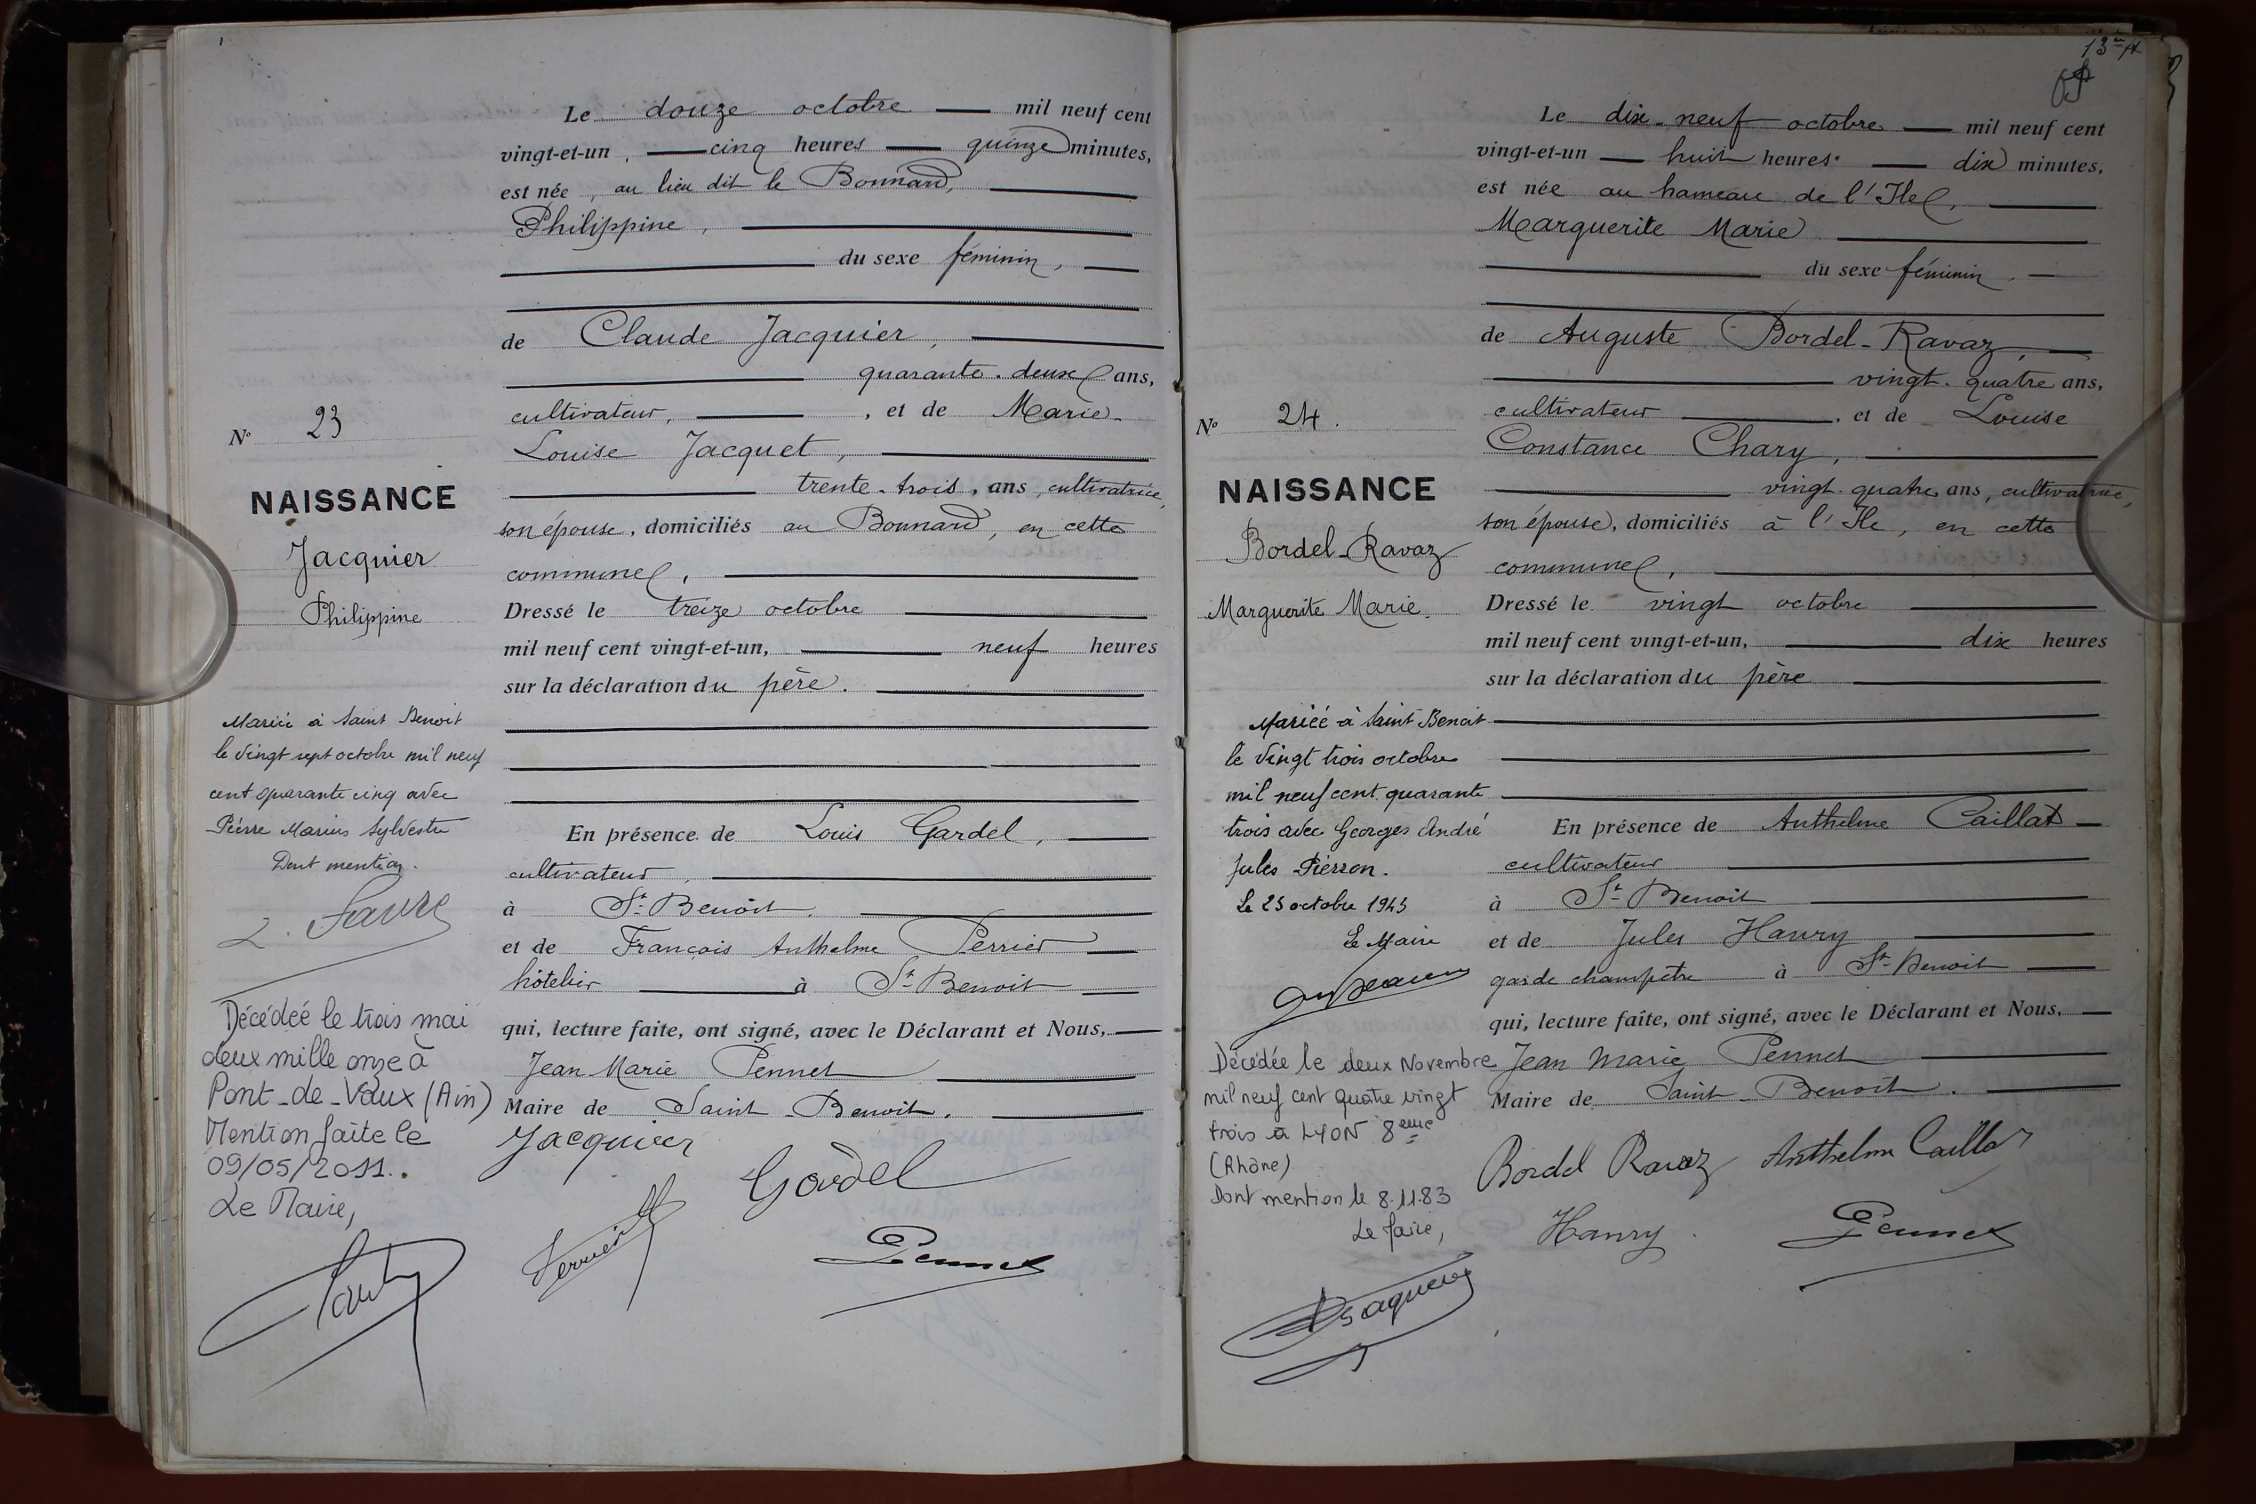 Le douze octobre mil neuf cent
vingt-et-un, cinq heures quinze minutes,
est née, au lieu dit le Bonnard,
Philippine,
du sexe féminin,
de Claude Jacquier,
quarante-deux ans,
cultivateur, , et de Marie-
Louise Jacquet,
trente-trois, ans, cultivatrice,
son épouse, domiciliés au Bonnard, en cette
commune,
Dressé le treize octobre
mil neuf cent vingt-et-un, neuf heures
sur la déclaration du père.
En présence de Louis Gardel,
cultivateur,
à St Benoit.
et de François Anthelme Perrier
hôtelier à St Benoit
qui, lecture faite, ont signé, avec le Déclarant et Nous,
Jean Marie Pennet
Maire de Saint-Benoit.
Jacquier
Gardel
Perrier
Pennet
No 23
NAISSANCE
Jacquier
Philippine
Mariée à Saint Benoit
le vingt sept octobre mil neuf
cent quarante cinq avec
Pierre Marius Sylvestre
Dont mention.
Décédée le trois mai
deux mille onze à
Pont-de-Vaux (Ain)
Mention faite le
09/05/2011.
Le Maire,
13
Le dix-neuf octobre mil neuf cent
vingt-et-un huit heures dix minutes,
est née au hameau de l'Ile,
Marguerite Marie
du sexe féminin.
de Auguste Bordel-Ravaz,
vingt-quatre ans,
cultivateur , et de Louise
Constance Chary,
vingt-quatre ans, cultivatrice,
son épouse, domiciliés à l'Ile, en cette
commune,
Dressé le vingt octobre
mil neuf cent vingt-et-un, dix heures
sur la déclaration du père
En présence de Anthelme Caillat
cultivateur
à St Benoit
et de Jules Hanry
garde champêtre à St Benoit
qui, lecture faite, ont signé, avec le Déclarant et Nous,
Jean Marie Pennet
Maire de Saint-Benoit.
Bordel Ravaz Anthelme Caillat
Hanry Pennet
No 24.
NAISSANCE
Bordel-Ravaz
Marguerite Marie.
Mariée à Saint Benoit
le vingt trois octobre
mil neuf cent quarante
trois avec Georges André
Jules Pierson.
Le 25 octobre 1943
Le Maire
Décédée le deux Novembre
mil neuf cent quatre vingt
trois à LYON 8eme
(Rhône)
Dont mention le 8.11.83
Le Maire,